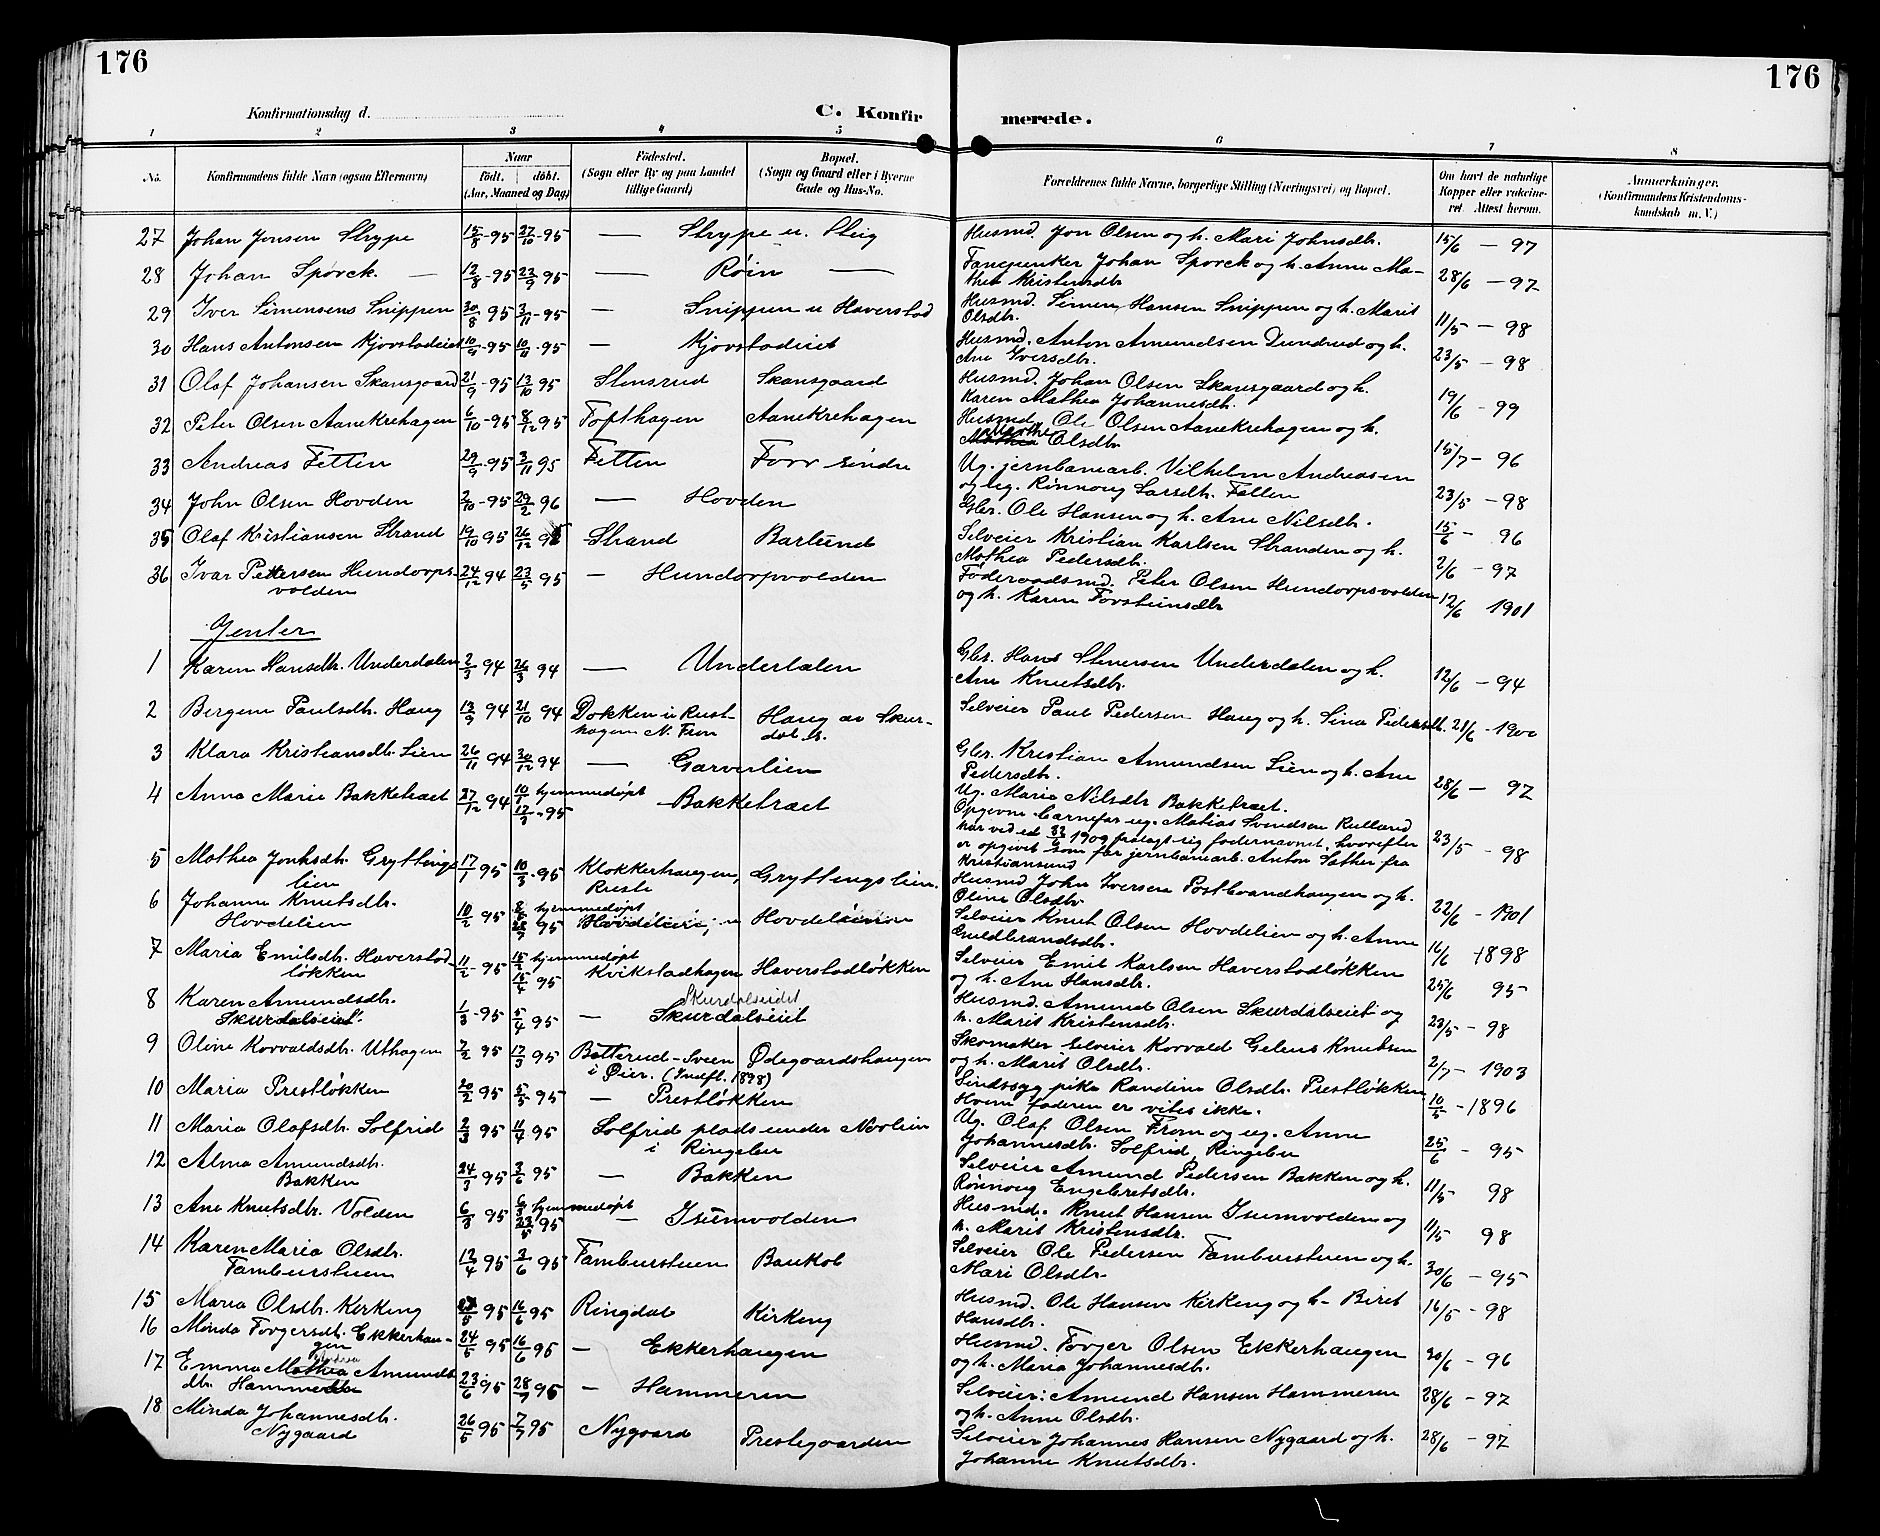 176
176
Konfirmationsdag d.
C. Konfir
merede.
1 2 3 4 5 6 7 8
No.
Konfirmandens fulde Navn (ogsaa Efternavn)
Naar
født. døbt.
(Aar, Maaned og Dag)
Födested.
(Sogn eller By og paa Landet
tillige Gaard)
Bopæl.
(Sogn og Gaard eller i Byerne
Gade og Hus-No.
Forældrenes fulde Navne, borgerlige Stilling (Næringsvei) og Bopæl.
Om havt de naturlige
Kopper eller vakcine-
ret. Attest herom.
Anmærkninger.
(Konfirmandens Kristendoms-
kundskab m. V.)
27 Johan Jonsen Strype 15/8 - 95 27/10 - 95 — Strype u. Steig Husmd. Jon Olsen og h. Mari Johnsdtr. 15/6 - 97
28 Johan Spørck. — 12/8 - 95 22/9 95 — Røin — Fanejunker Johan Spørck og h. Anne Ma-
thea Kristensdtr 28/6 - 97
29 Iver Simensens Snippen 30/8 95 3/11 - 95 — Snippen u Haverstad Husmd. Simen Hansen Snippen og h. Marit
Olsdtr. 11/5 - 98
30 Hans Antonsen Kjorstadeiet 10/9 - 95 10/11 - 95 — Kjorstadeiet Husmd. Anton Amundsen Dundrud og h.
Ane Iversdtr. 23/5 - 98
31 Olaf Johansen Skansgaard 21/9 - 95 13/10 95 Stensrud Skansgaard Husmd. Johan Olsen Skansgaard og h.
Karen Mathea Johannesdtr. 19/6 - 99
32 Peter Olsen Aanekrehagen 6/10 - 95 8/12 95 Tofthagen Aanekrehagen Husmd. Ole Olsen Aanekrehagen og h.
Olsdtr 15/7 - 96
33 Andreas Fetten 29/9 - 95 3/11 95 Fetten Forr søndre Ug. jernbanearb. Vilhelm Andreasen
og ug. Rønnoug Larsdtr. Fetten 23/5 - 98
34 John Olsen Hovden 2/10 - 95 29/2 96 — Hovden Gbr. Ole Hansen og h. Ane Nilsdtr. 15/6 - 96
35 Olaf Kristiansen Strand 19/10 95 26/12 95 Strand Barlund Selveier Kristian Karlsen Stranden og h.
Mathea Pedersdtr. 2/6 - 97
36 Ivar Pettersen Hundorps-
volden 24/12 94 23/5 95 — Hundorpvolden Føderaadsmd. Peter Olsen Hundorpsvolden
og h. Karen Torsteinsdtr 12/6 1901
Jenter
1 Karen Hansdtr. Underdalen 2/3 94 26/3 94 — Underdalen Gbr. Hans Stenersen Underdalen og h.
Ane Knutsdtr. 12/6 - 94
2 Bergine Paulsdtr. Haug 13/9 94 21/10 94 Dokken u Rust-
hagen N. Fron Haug av Skur-
dal. Selveier Paul Pedersen Haug og h. Sina Pedersdtr. 21/6 - 1900
3 Klara Kristiansdtr. Lien 26/11 94 30/12 94 — Garverlien Gbr. Kristian Amundsen Lien og h. Ane
Pedersdtr. 28/6 - 97
4 Anna Marie Bakketræet 27/12 94 10/1 hjemmedøpt
17/3 - 95 — Bakketræet Ug. Marie Nilsdtr Bakketræet.
Opgivne barnefar ug. Matias Svendsen Rulland
har ved ed 1909 fralagt sig fadernavnet, hvorefter
er opgivet som far jernbanearb. Anton Sæther fra
Kristiansund 23/5 - 98
5 Mathea Johnsdtr. Gryttings-
lien 17/1 95 10/3 - 95 Klokkerhaugen,
Gryttingslien. Husmd John Iversen Postbrandhaugen og h.
Oline Olsdtr 22/6 - 1901
6 Johanne Knutsdtr.
Hovdelien 10/2 95 hjemmedøpt
95 Hovdelien Selveier Knut Olsen Hovdelien og h. Anne
Guldbrandsdtr. 16/6 - 1898
7 Maria Emilsdtr. Haverstad-
løkken 11/2 - 95 15/2 hjemmedøpt
15/4 95 Kvikstadhagen Haverstadløkken Selveier Emil Karlsen Haverstadløkken
og h. Ane Hansdtr. 25/6 95
8 Karen Amundsdtr.
Skurdalseiet. 1/3 - 95 5/4 95 — Skurdalseiet
Skurdalseiet Husmd. Amund Olsen Skurdalseiet og
h. Marit Kristensdtr. 23/5 - 98
9 Oline Korvaldsdtr. Uthagen 7/2 95 17/3 95 Botterud - Sveen
i Øier. (Indfl. 1898) Ødegaardshaugen Skomaker selveier Korvald Gelens Knutsen
og h. Marit Olsdtr. 2/7 - 1903
10 Maria Prestløkken 20/2 95 5/5 95 — Prestløkken Sindssyg pike Randine Olsdtr. Prestløkken
Hvem faderen er vites ikke. 10/5 - 1896
11 Maria Olafsdtr. Solfrid 2/3 95 11/4 95 Solfrid plads under Nordlien
i Ringebu Ug. Olaf Olsen From og ug. Anne
Johannesdtr. Solfrid, Ringebu 25/6 - 95
12 Alma Amundsdtr.
Bakken 24/3 95 3/6 95 — Bakken Selveier Amund Pedersen Bakken og h.
Rønnoug Engebretsdtr. 11/5 98
13 Ane Knutsdtr. Volden 6/3 95 6/3 hjemmedøpt
23/5 95 — Isumvolden Husmd. Knut Hansen Isumvolden og
h. Marit Kristensdtr. 11/5 98
14 Karen Maria Olsdtr.
Tamburstuen 12/4 95 3/6 95 Tamburstuen Baukol Selveier Ole Pedersen Tamburstuen og h.
Mari Olsdtr. 30/6 - 95
15 Maria Olsdtr. Kirkeng 95 16/6 95 Ringdal Kirkeng Husmd. Ole Hansen Kirkeng og h. Biret
Hansdtr. 16/5 - 98
16 Minda Torgersdtr. Ekkerhau-
gen 24/5 95 16/6 95 — Ekkerhaugen Husmd. Torger Olsen Ekkerhaugen
og h. Maria Johannesdtr. 30/6 - 96
17 Emma Mathea Amunds-
dtr. Hammeren 23/6 95 28/7 95 — Hammeren Selveier: Amund Hansen Hammeren
og h. Anne Olsdtr. 28/6 - 97
18 Minda Johannesdtr.
Nygaard 26/5 95 7/7 95 Nygaard Prestegaarden Selveier Johannes Hansen Nygaard og h.
Johanne Knutsdtr. 28/6 - 97